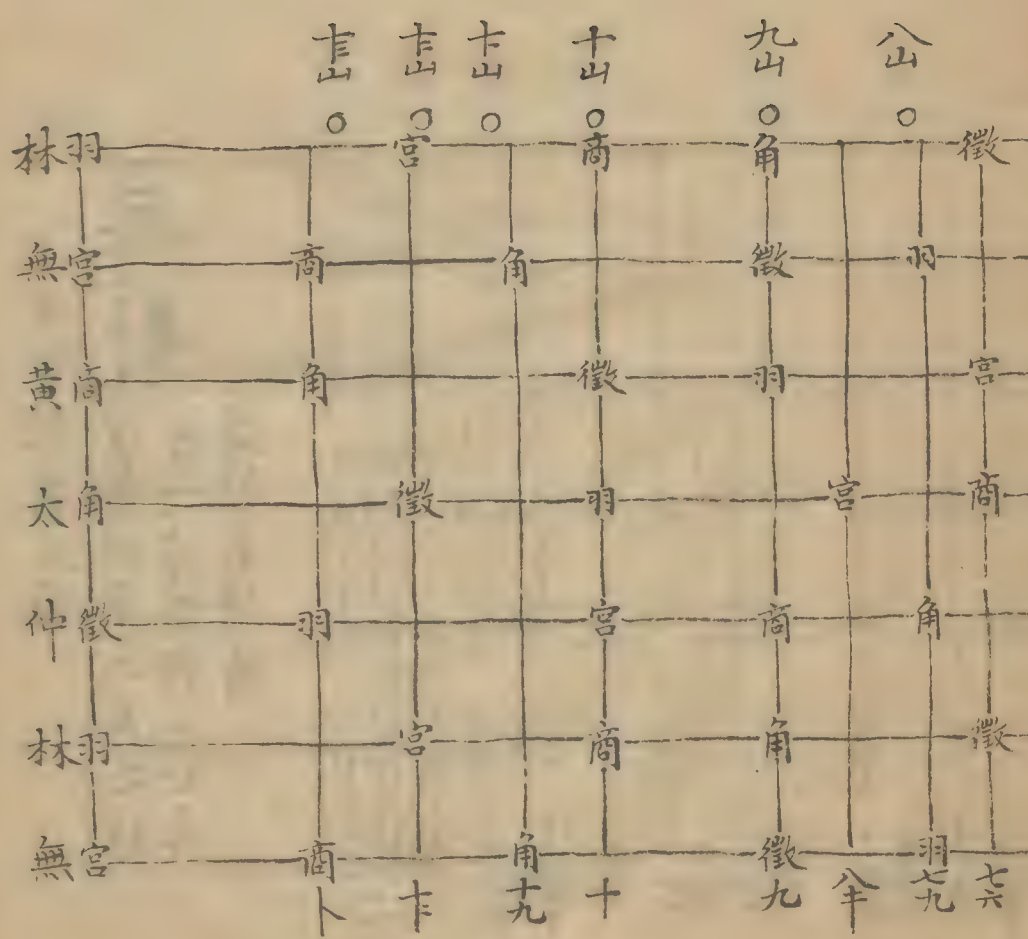 十三山 十二山 十一山 十山 九山 八山
林 羽 宮 商 角 徵
無 宮 商 角 徵 羽
黃 商 角 徵 羽 宮
太 角 徵 羽 宮 商
仲 徵 羽 宮 商 角
林 羽 宮 商 角 徵
無 宮 商 角 徵 羽
卜 十二 十九 十 九 八半 七九 七六